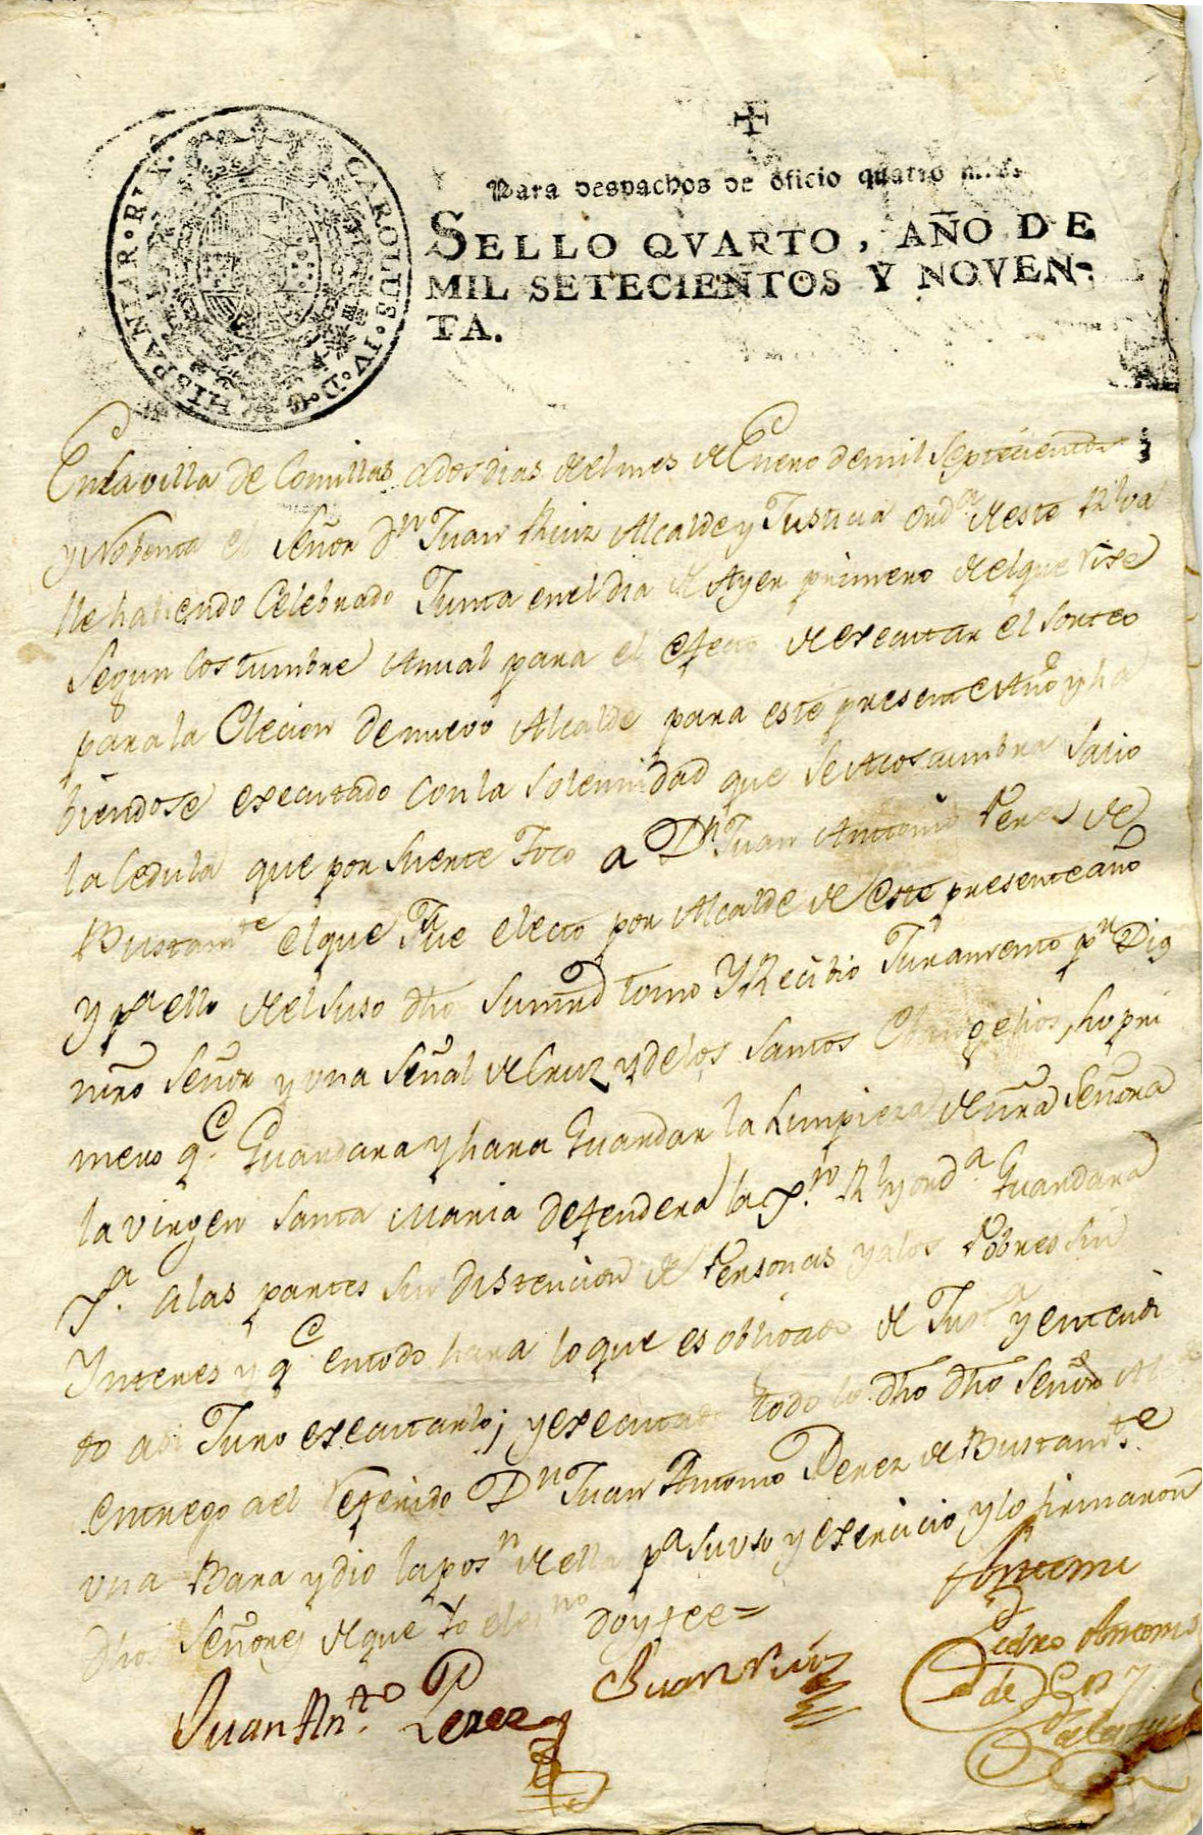 CAROLUS·IV·D·G· HISPANIAR·REX·
Para despachos de oficio quatro mrs.
SELLO QVARTO, AÑO DE
MIL SETECIENTOS Y NOVEN-
TA.
En la villa de Comillas a dos dias del mes de Enero de mil Septecientos
y Nobenta el Señor Dn Juan Ruiz Alcalde y Justicia ordª de este Rl va
lle habiendo Celebrado Junta en el dia de Ayer primero del que rixe
Segun Costumbre Anual para el efecto de executar el Sorteo
para la Elecion de nuevo Alcalde para este presente Año y ha
biendose executado con la Solemnidad que se Acostumbra Salio
la Cedula que por Suerte Toco a Dn Juan Antonio Perez de
Bustamte el que Fue electo por Alcalde de este presente año
Y pª ello del Suso dho Su md tomo Y Recibio Juramento pr Dios
nro Señor y una Señal de Cruz y de los Santos Evangelios, lo pri
mero qe Guardara y hara Guardar la Limpieza de nra Señora
la virgen Santa Maria defendera la Jon Rl y ordª Guardara
Jª a las partes sin distencion de Personas y a los Pobres sin
Ynteres y qe en todo hara lo que es obligado de Justª y entendi
do asi Juro executarlo; y executado todo lo dho dho Señor Alde
entrego a el referido Dn Juan Antonio Perez de Bustamte
una Bara y dio la posn de ella pª su uso y exercicio y lo firmaron
dhos Señores de que Yo el esno doy fee=
Juan Anto Perez
Juan Ruiz
Antemi
Pedro Antonio
de